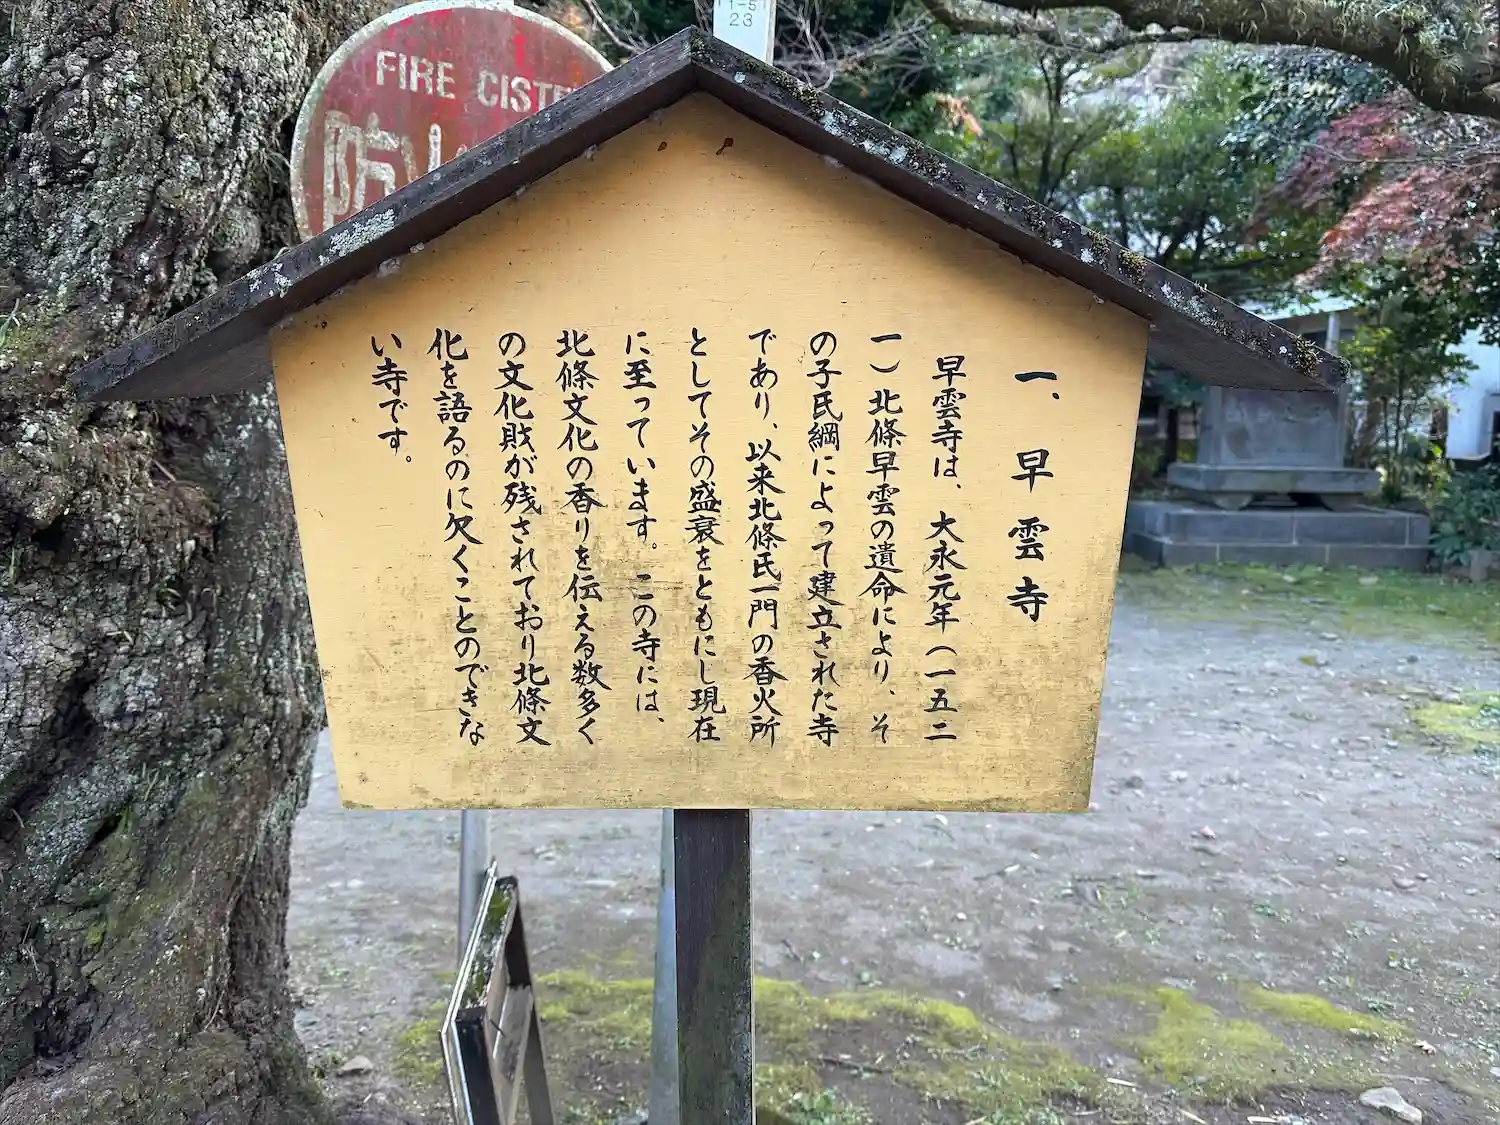 1-5
23
FIRE CISTE
防火
一、早雲寺
早雲寺は、大永元年（一五二
一）北條早雲の遺命により、そ
の子氏綱によって建立された寺
であり、以来北條氏一門の香火所
としてその盛衰をともにし現在
に至っています。この寺には、
北條文化の香りを伝える数多く
の文化財が残されており北條文
化を語るのに欠くことのできな
い寺です。